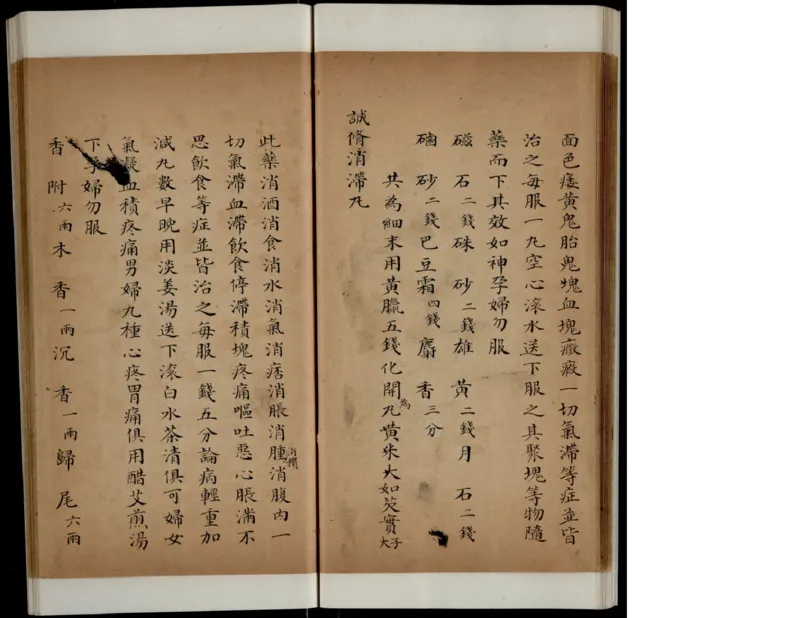 面色痿黃鬼胎鬼塊血塊癥瘕一切氣滯等症並皆
治之每服一丸空心滚水送下服之其聚塊等物隨
藥而下其效如神孕婦勿服
磁石二錢硃砂二錢雄黃二錢月石二錢
硇砂二錢巴豆霜四錢麝香三分
共為細末用黃臘五錢化開為丸黄米大如芡實大子
誠脩消滯丸
此藥消酒消食消水消氣消痞消脹消腫消腹內一
切氣滯血滯飲食停滯積塊疼痛嘔吐惡心脹滿不
思飲食等症並皆治之每服一錢五分論病輕重加
减丸數早晚用淡姜湯送下滚白水茶清俱可婦女
氣凝血積疼痛男婦九種心疼胃痛俱用醋艾煎湯
下孕婦勿服
香附六兩木香一兩沉香一兩歸尾六兩